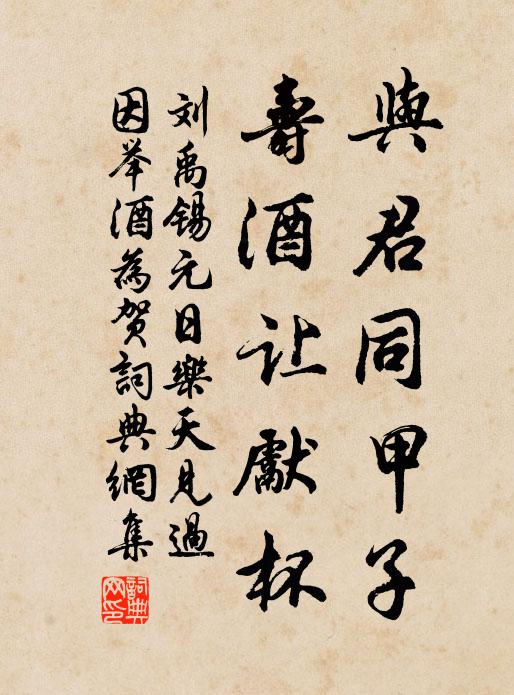 與君同甲子
壽酒让獻杯
刘禹锡元日樂天見過
因举酒為贺詞典網集
詞典
网印